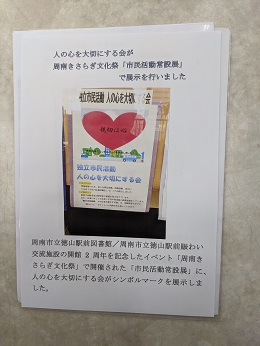 人の心を大切にする会が
周南きさらぎ文化祭「市民活動常設展」
で展示を行いました
独立市民活動 人の心を大切にする会
独立市民活動
人の心を大切にする会
周南市立徳山駅前図書館／周南市立徳山駅前賑わい
交流施設の開館 2 周年を記念したイベント「周南き
さらぎ文化祭」で開催された「市民活動常設展」に、
人の心を大切にする会がシンボルマークを展示しま
した。